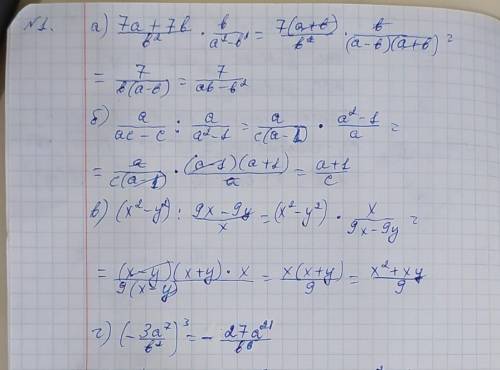 №1. а) (7a+7b)/b² · b/(a²-b²) = 7(a+b)/b² · b/((a-b)(a+b)) =
= 7/(b(a-b)) = 7/(ab-b²)
б) a/(ac-c) : a/(a²-1) = a/(c(a-1)) · (a²-1)/a =
= a/(c(a-1)) · (a-1)(a+1)/a = (a+1)/c
в) (x²-y²) : (9x-9y)/x = (x²-y²) · x/(9x-9y) =
= (x-y)(x+y)·x/(9(x-y)) = x(x+y)/9 = (x²+xy)/9
г) (-3a⁷/b²)³ = - 27a²¹/b⁶